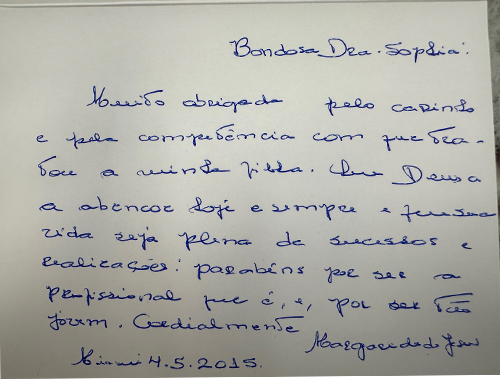 Bondosa Dra. Sophia:
Muito obrigada pelo carinho
e pela competência com que tra-
tou a minha filha. Que Deus a
a abençoe hoje e sempre e que sua
vida seja plena de sucessos e
realizações! parabéns por ser a
profissional que é, e, por ser tão
jovem. Cordialmente
Margarida de Jesus
Miami 4.5.2015.